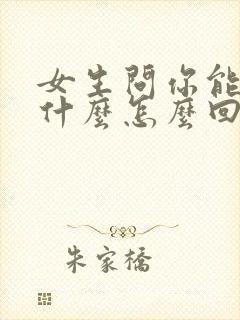 女生問你能
什麼怎麼回
朱家橋